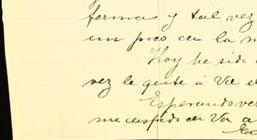 forma y tal vez
un poco en la m
Hoy he sido
vez le guste á Vd el
Esperando ve
me despido de Vd a